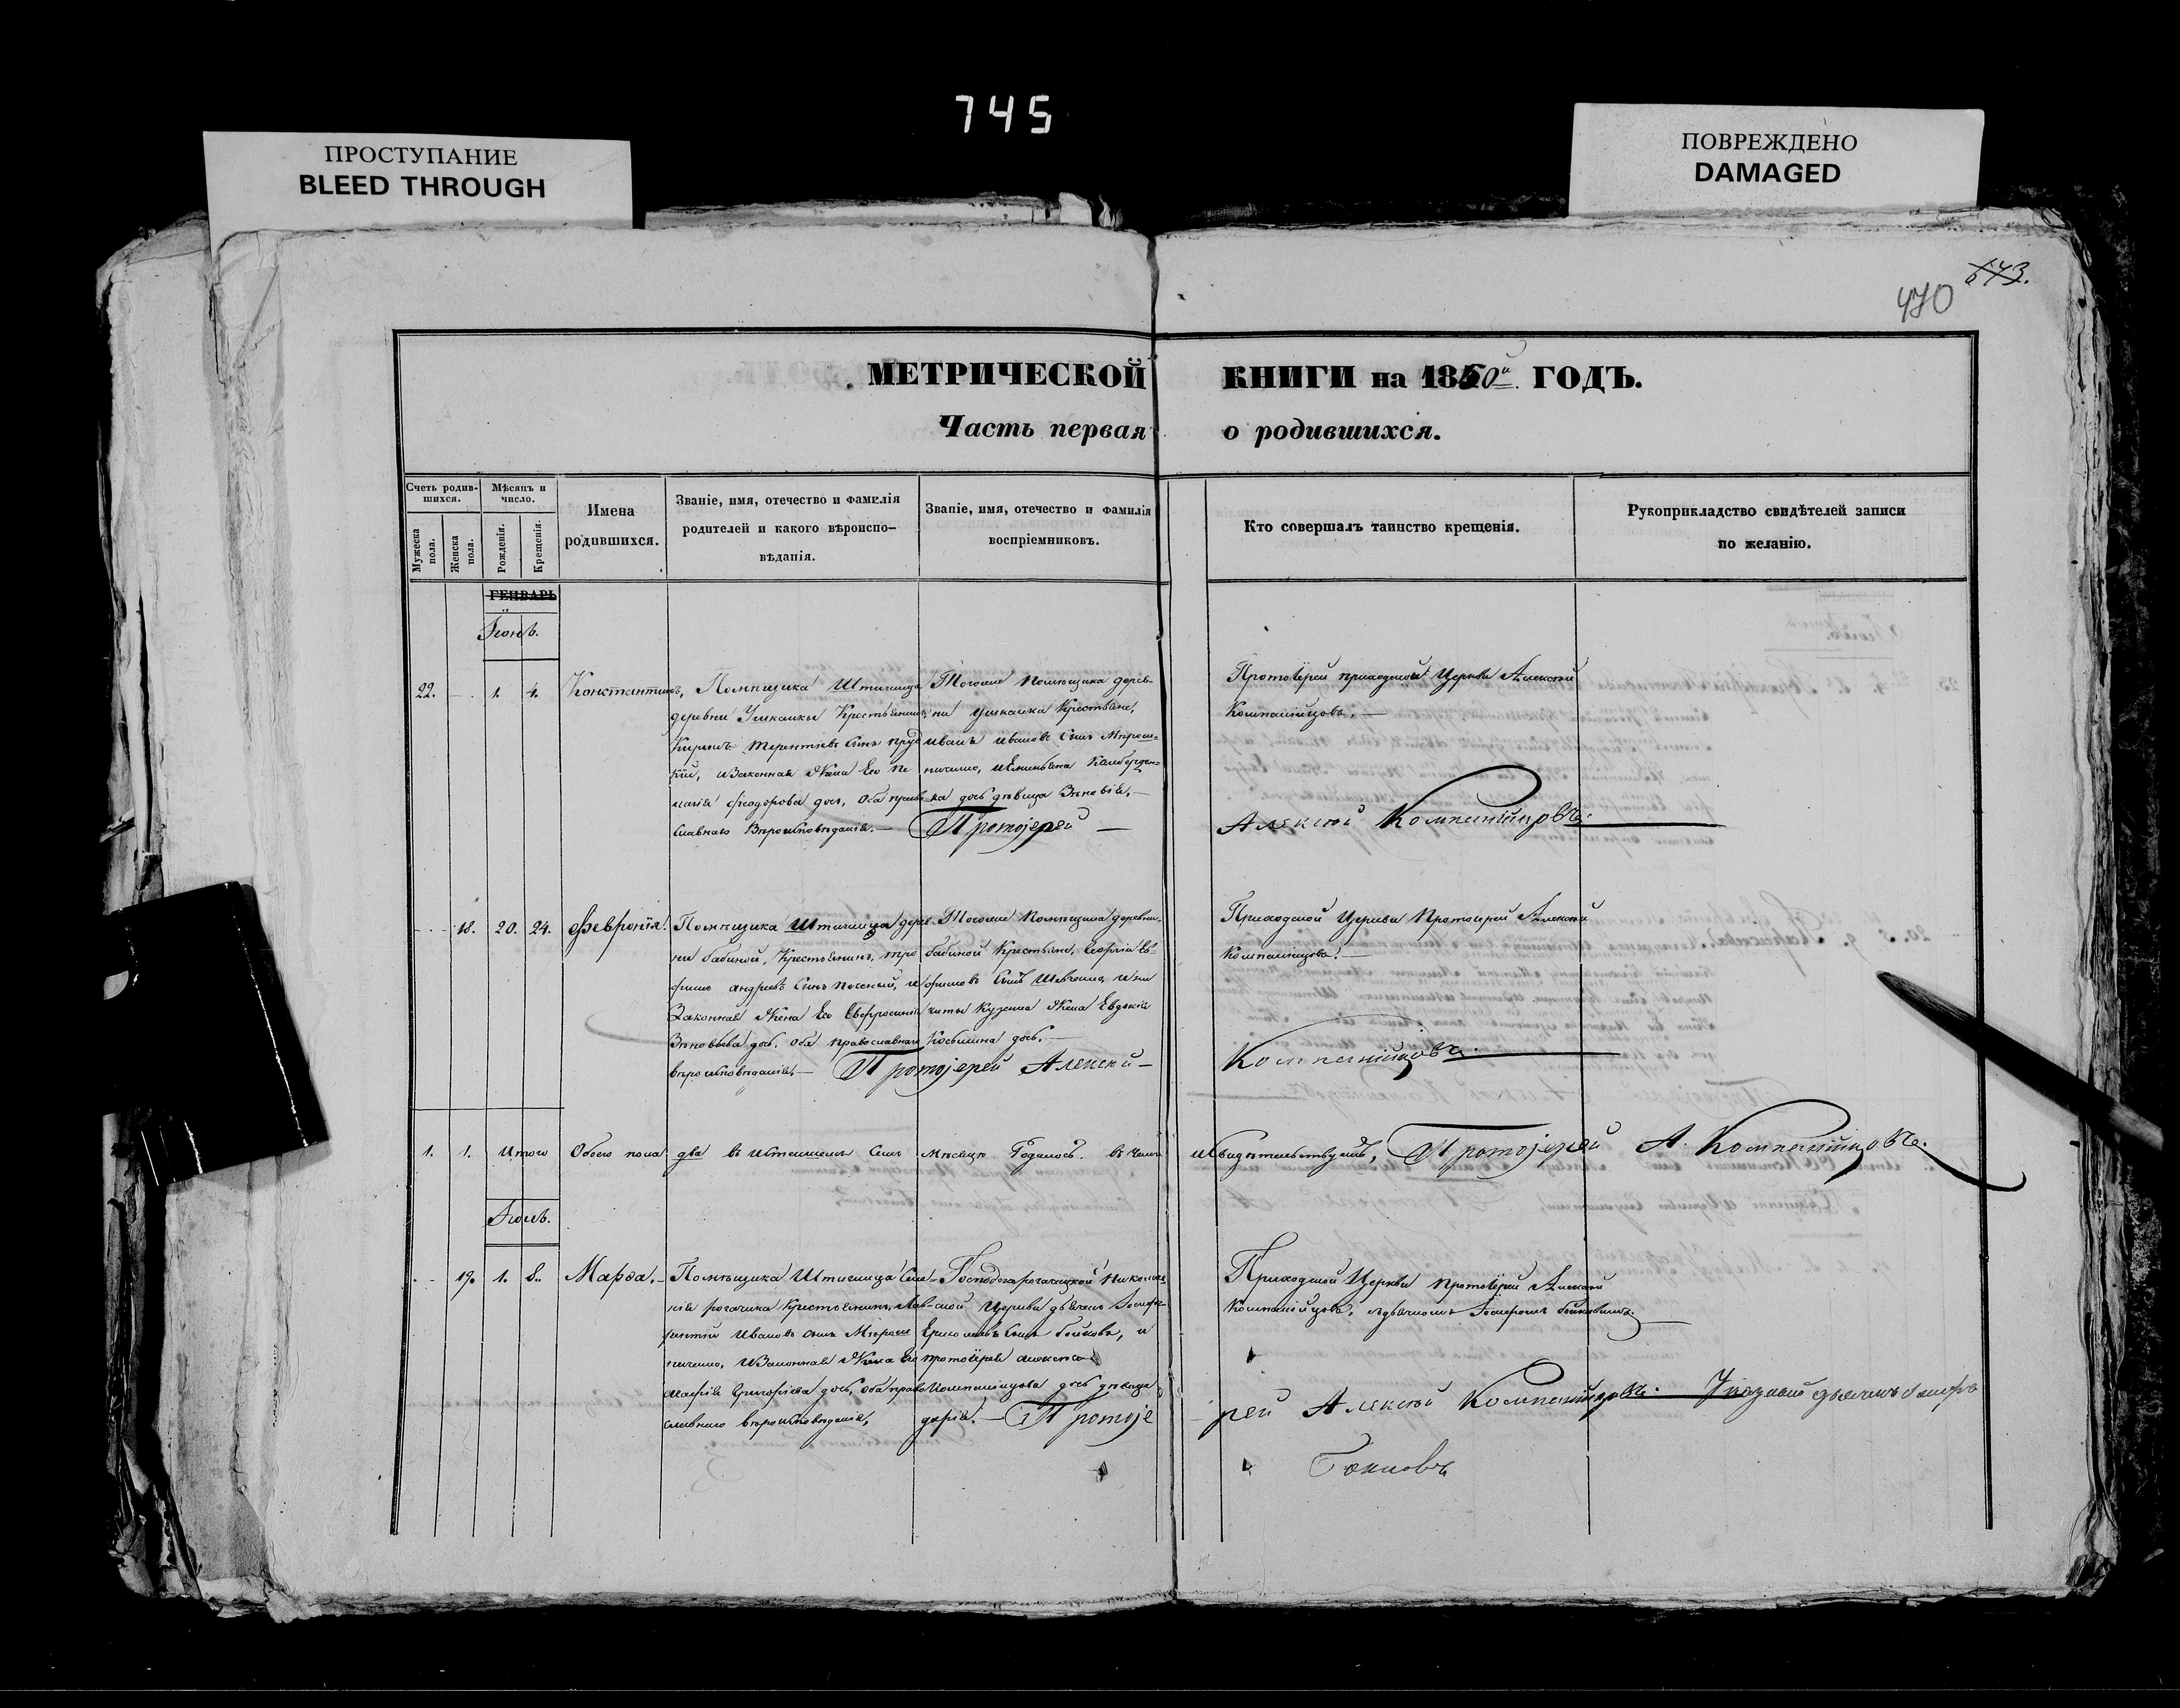 745
ПРОСТУПАНИЕ
BLEED THROUGH
ПОВРЕЖДЕНО
DAMAGED
643.
470
МЕТРИЧЕСКОЙ КНИГИ на 1850й ГОДЪ.
Часть первая о родившихся.
Счетъ родив-
шихся.
Мужеска пола.
Женска пола.
Мѣсяцъ и
число.
Рожденія.
Крещенія.
Имена
родившихся.
Званіе, имя, отечество и фамилія
родителей и какого вѣроиспо-
вѣданія.
Званіе, имя, отечество и фамилія
воспріемниковъ.
Кто совершалъ таинство крещенія.
Рукоприкладство свидѣтелей записи
по желанію.
ГЕНВАРЬ
Іюнь.
22. 1. 4. Константинъ,
Помѣщика Штиглица
деревни Ушкалки Крестьянинъ
Терентіевъ Сынъ
кій, и Законная Жена Его Пе
Феодорова дочь, Оба право
славнаго Вѣроисповѣданія.
Тогоже Помѣщика дерев-
ни Ушкалки Крестьяне,
Иванъ Ивановъ Сынъ Мирош-
ниченко,
дочь дѣвица Зѣновія.
Протоіерей приходской Церкви Алексѣй
Компанійцовъ.
Протоіерей Алексѣй Компанійцовъ.
18. 20. 24. Февронія.
Помѣщика Штиглица дерев-
ни Бабиной, Крестьянинъ, Тро
фимъ Андреевъ Сынъ и
Законная Жена Его Евфросинія
Зѣновьева дочь. Оба Православнаго
вѣроисповѣданія.
Тогоже Помѣщика деревни
Бабиной Крестьяне,
фимовъ Сынъ Шевченко, и
Жена Евдокія
дочь.
Приходской Церкви Протоіерей Алексѣй
Компанійцовъ.
Протоіерей Алексѣй Компанійцовъ.
1. 1. Итого Обоего пола два въ Семъ Мѣсяцѣ Родилось. Въ чемъ и Свидѣтельствуемъ, Протоіерей А. Компанійцовъ.
Іюль.
19. 1. 8. Марѳа.
Помѣщика Штиглица Села
рогачика Крестьянинъ, Лав-
рентій Ивановъ сынъ Мирош
ниченко, и Законная Жена Его
Марія Григоріева дочь, Оба право
славнаго вѣроисповѣданія,
рогачицкой Николаев
ской Церкви дьячекъ Іосифъ
Сынъ Бойковъ, и
протоіерея Алексѣя
Компанійцова дочь дѣвица
Дарія.
Приходской Церкви Протоіерей Алексѣй
Компанійцовъ, съ дьячкомъ Іосифомъ
Протоіе
рей Алексѣй Компанійцовъ. Указный дьячекъ Іосифъ
Бойковъ